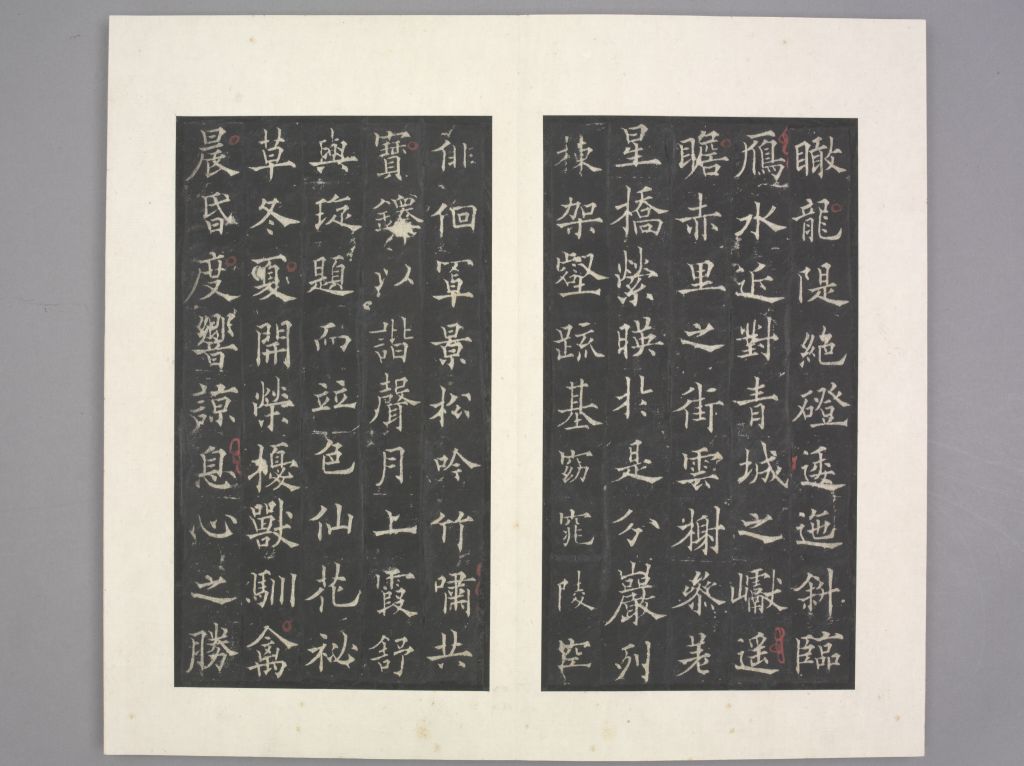 瞰龍隄絶磴逶迤斜臨
鴈水近對青城之巘遥
瞻赤里之街雲榭參差
星橋縈暎於是分巖列
棟架壑疏基窈窕陵空
徘徊罩景松吟竹嘯共
寶鐸以諧聲月上霞舒
與琁題而竝色仙花祕
草冬夏開榮櫌獸馴禽
晨昏度響諒息心之勝